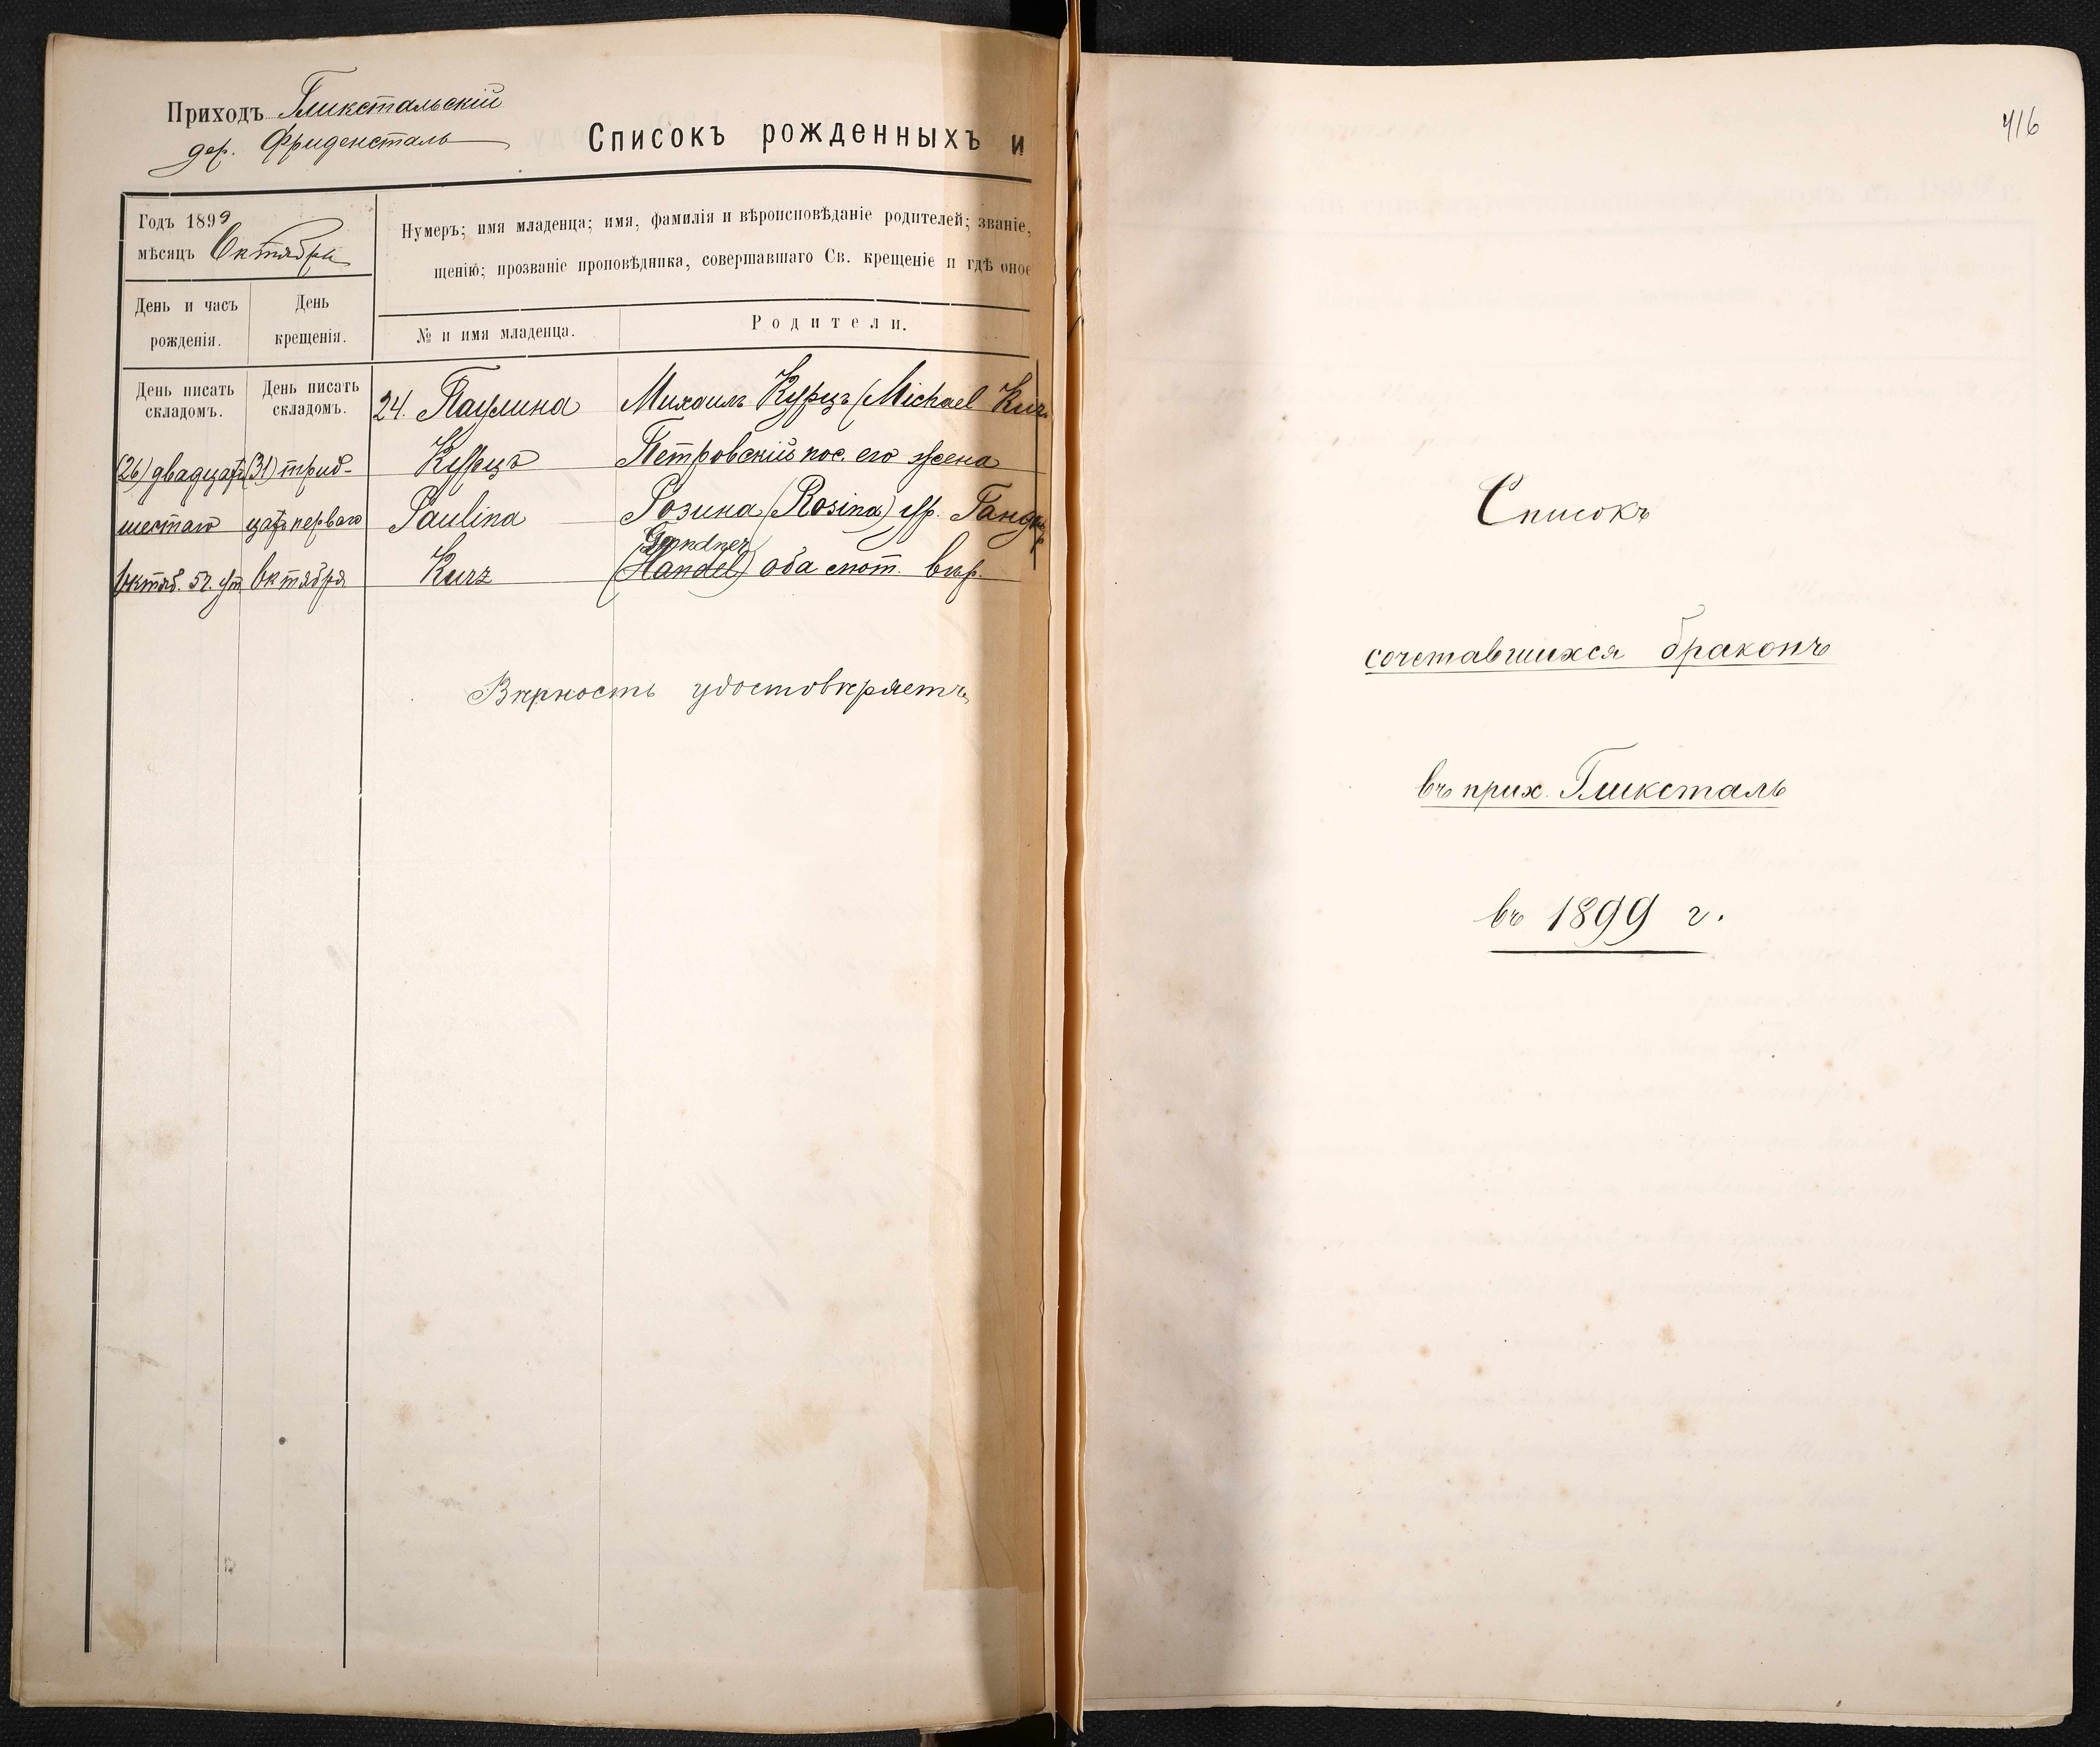 Приходъ Гликстальскій
дер. Фриденсталь
Списокъ рожденныхъ и
Годъ 1899
мѣсяцъ Октябри
Нумеръ; имя младенца; имя, фамилія и вѣроисповѣданіе родителей; званіе,
щенію; прозваніе проповѣдника, совершавшаго Св. крещеніе и гдѣ оное
День и часъ
рожденія.
День
крещенія.
№ и имя младенца.
Родители.
День писать
складомъ.
День писать
складомъ.
(26) двадцать
шестаго
Октяб. 5 ч. ут.
(31) трид-
цать перваго
Октября
24. Паулина
Курцъ
Paulina
Kurz
Михаилъ Курцъ (Michael Kurz
Петровскій пос. его жена
Розина (Rosina) ур. Ганднер
Gandner
(Handel) оба лют. вѣр.
Вѣрность удостовѣряетъ
416
Списокъ
сочетавшихся бракомъ
въ прих. Гликсталь
въ 1899 г.